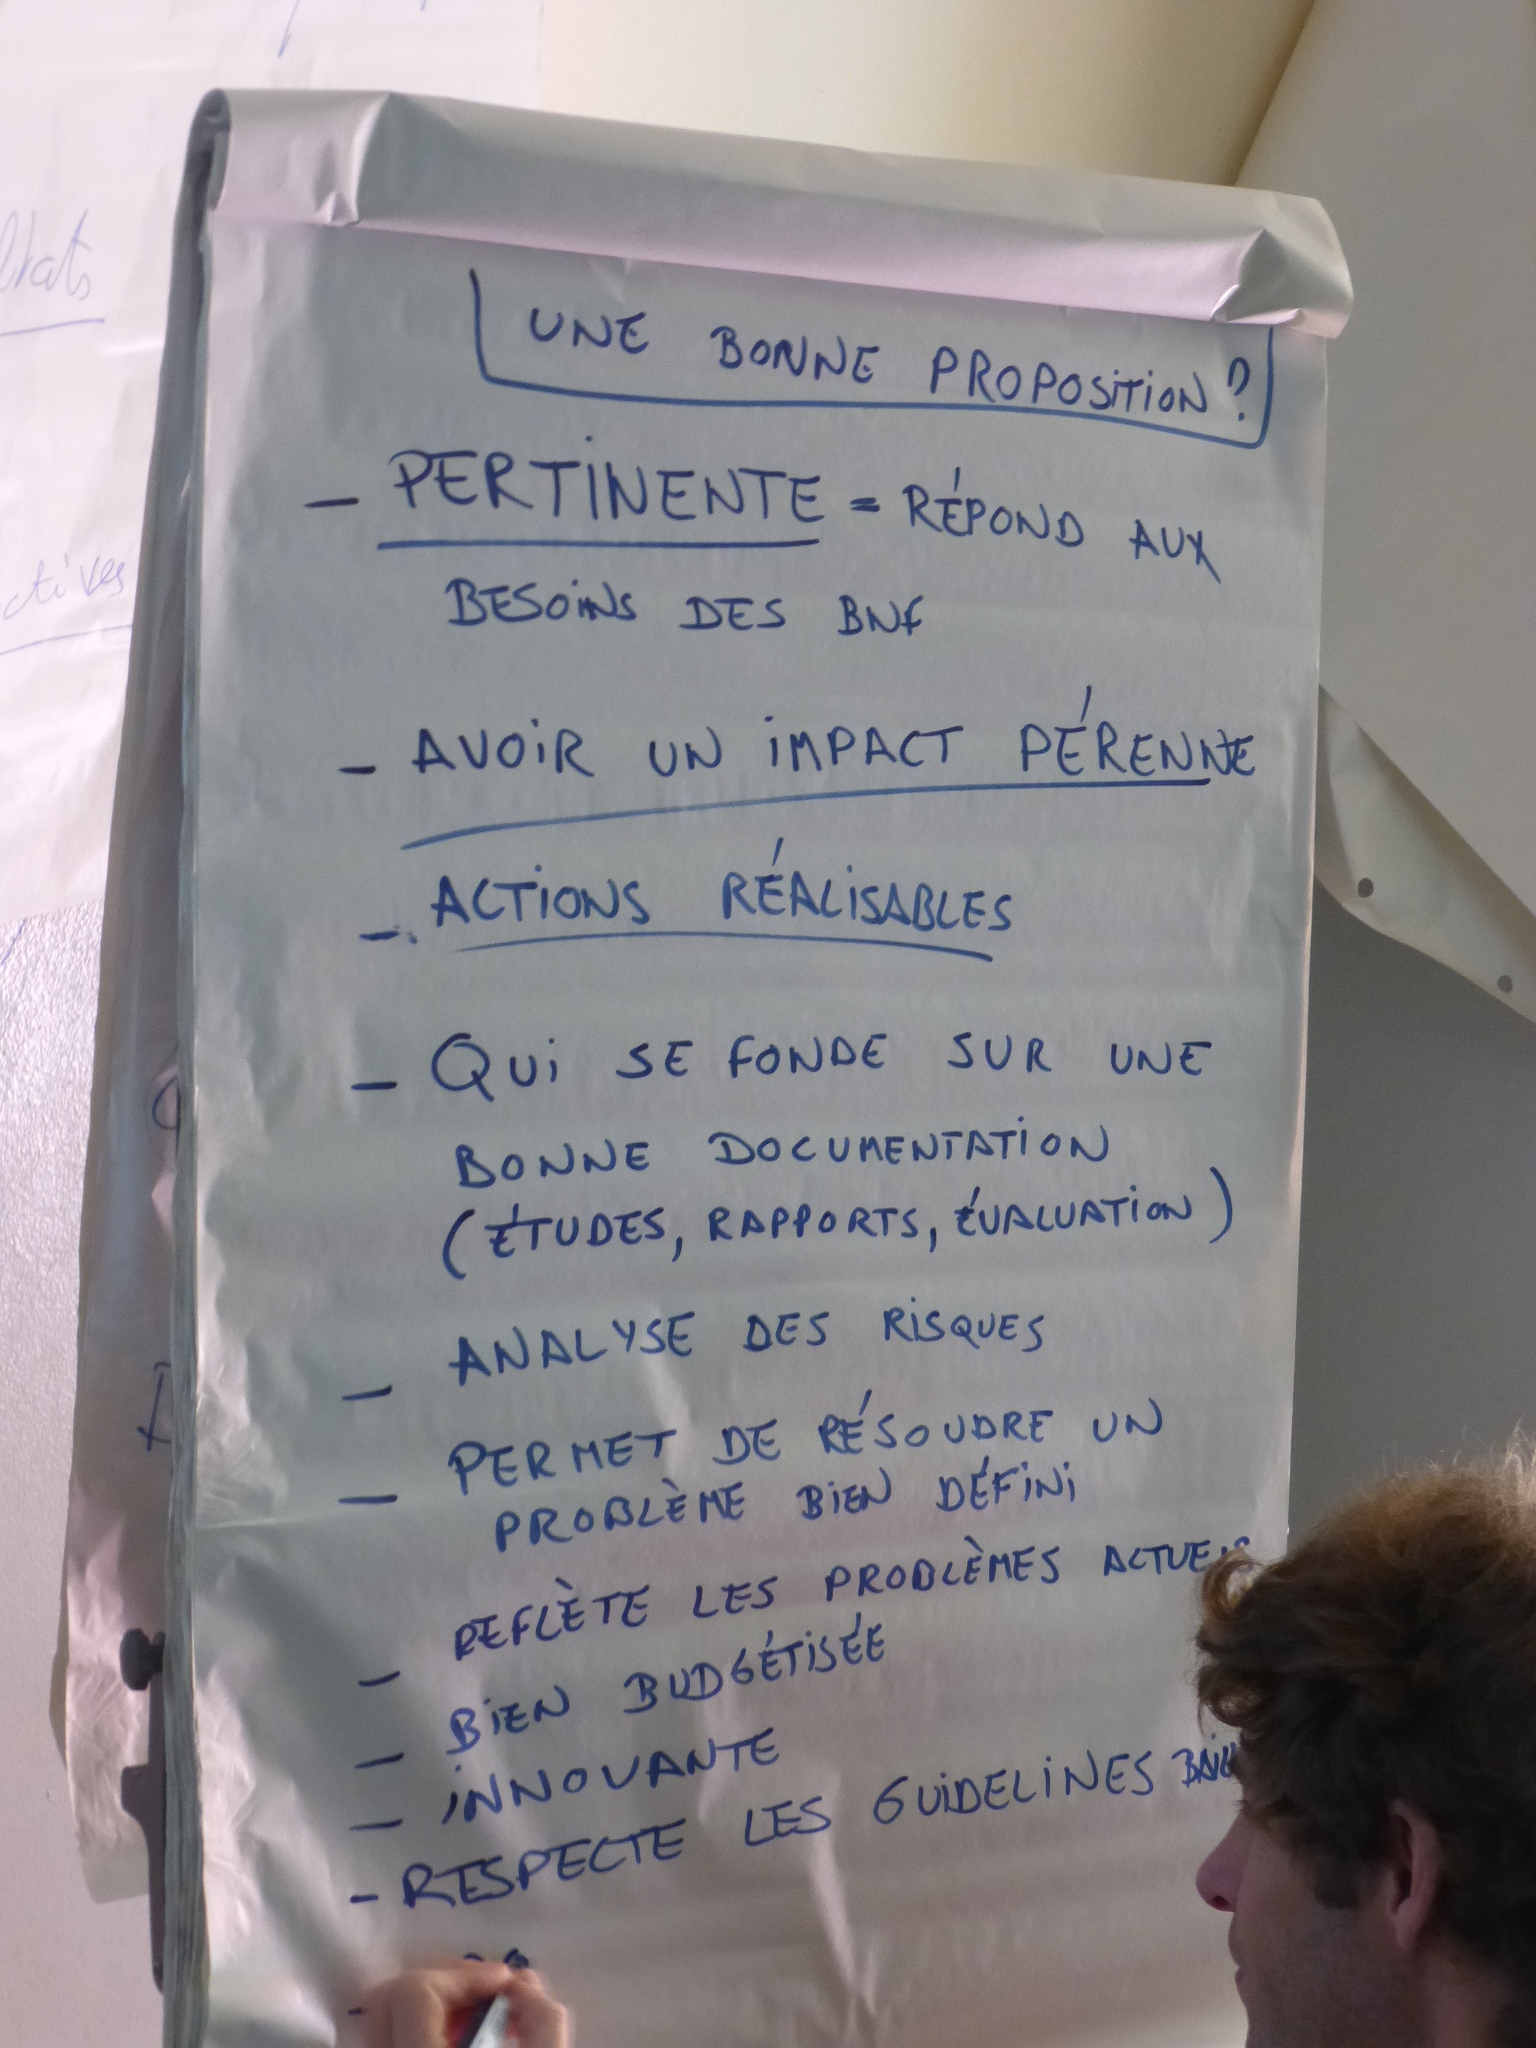 UNE BONNE PROPOSITION ?
– PERTINENTE = RÉPOND AUX
BESOINS DES BNF
– AVOIR UN IMPACT PÉRENNE
– ACTIONS RÉALISABLES
– QUI SE FONDE SUR UNE
BONNE DOCUMENTATION
(ÉTUDES, RAPPORTS, ÉVALUATION)
– ANALYSE DES RISQUES
– PERMET DE RÉSOUDRE UN
PROBLÈME BIEN DÉFINI
– REFLÈTE LES PROBLÈMES ACTUELS
– BIEN BUDGÉTISÉE
– INNOVANTE
– RESPECTE LES GUIDELINES